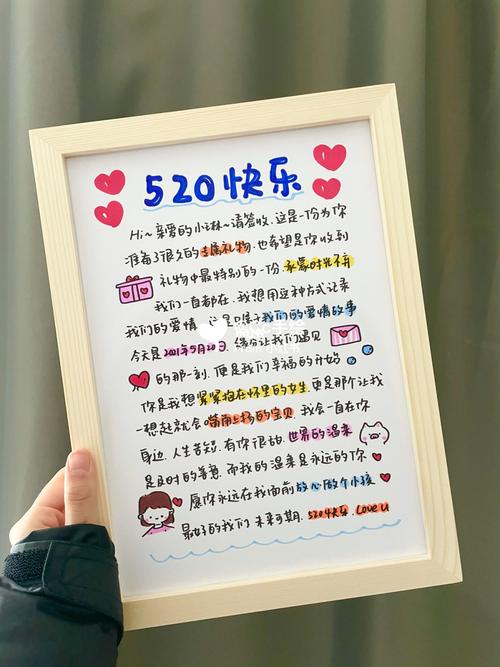 520快乐
Hi~亲爱的小琳~请签收.这是一份为你
准备了很久的专属礼物.也希望是你收到
礼物中最特别的一份.承蒙时光不弃
我们一直都在.我想用这种方式记录
我们的爱情.这是只属于我们的爱情故事
今天是2021年5月20日.缘分让我们遇见
的那一刻.便是我们幸福的开始
你是我想紧紧抱在怀里的女生.更是那个让我
一想起就会嘴角上扬的宝贝.我会一直在你
身边.人生苦短.有你很甜.世界的温柔
是及时的善意.而我的温柔是永远的你
愿你永远在我面前放心的做个小孩
最好的我们.未来可期.520快乐.Love U